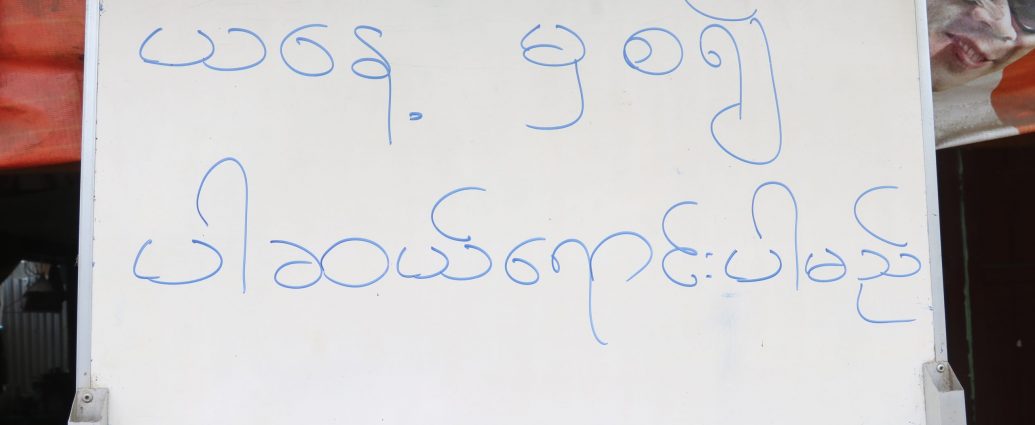 ယနေ့ မှစ၍
ပါဆယ်ရောင်းပါမည်